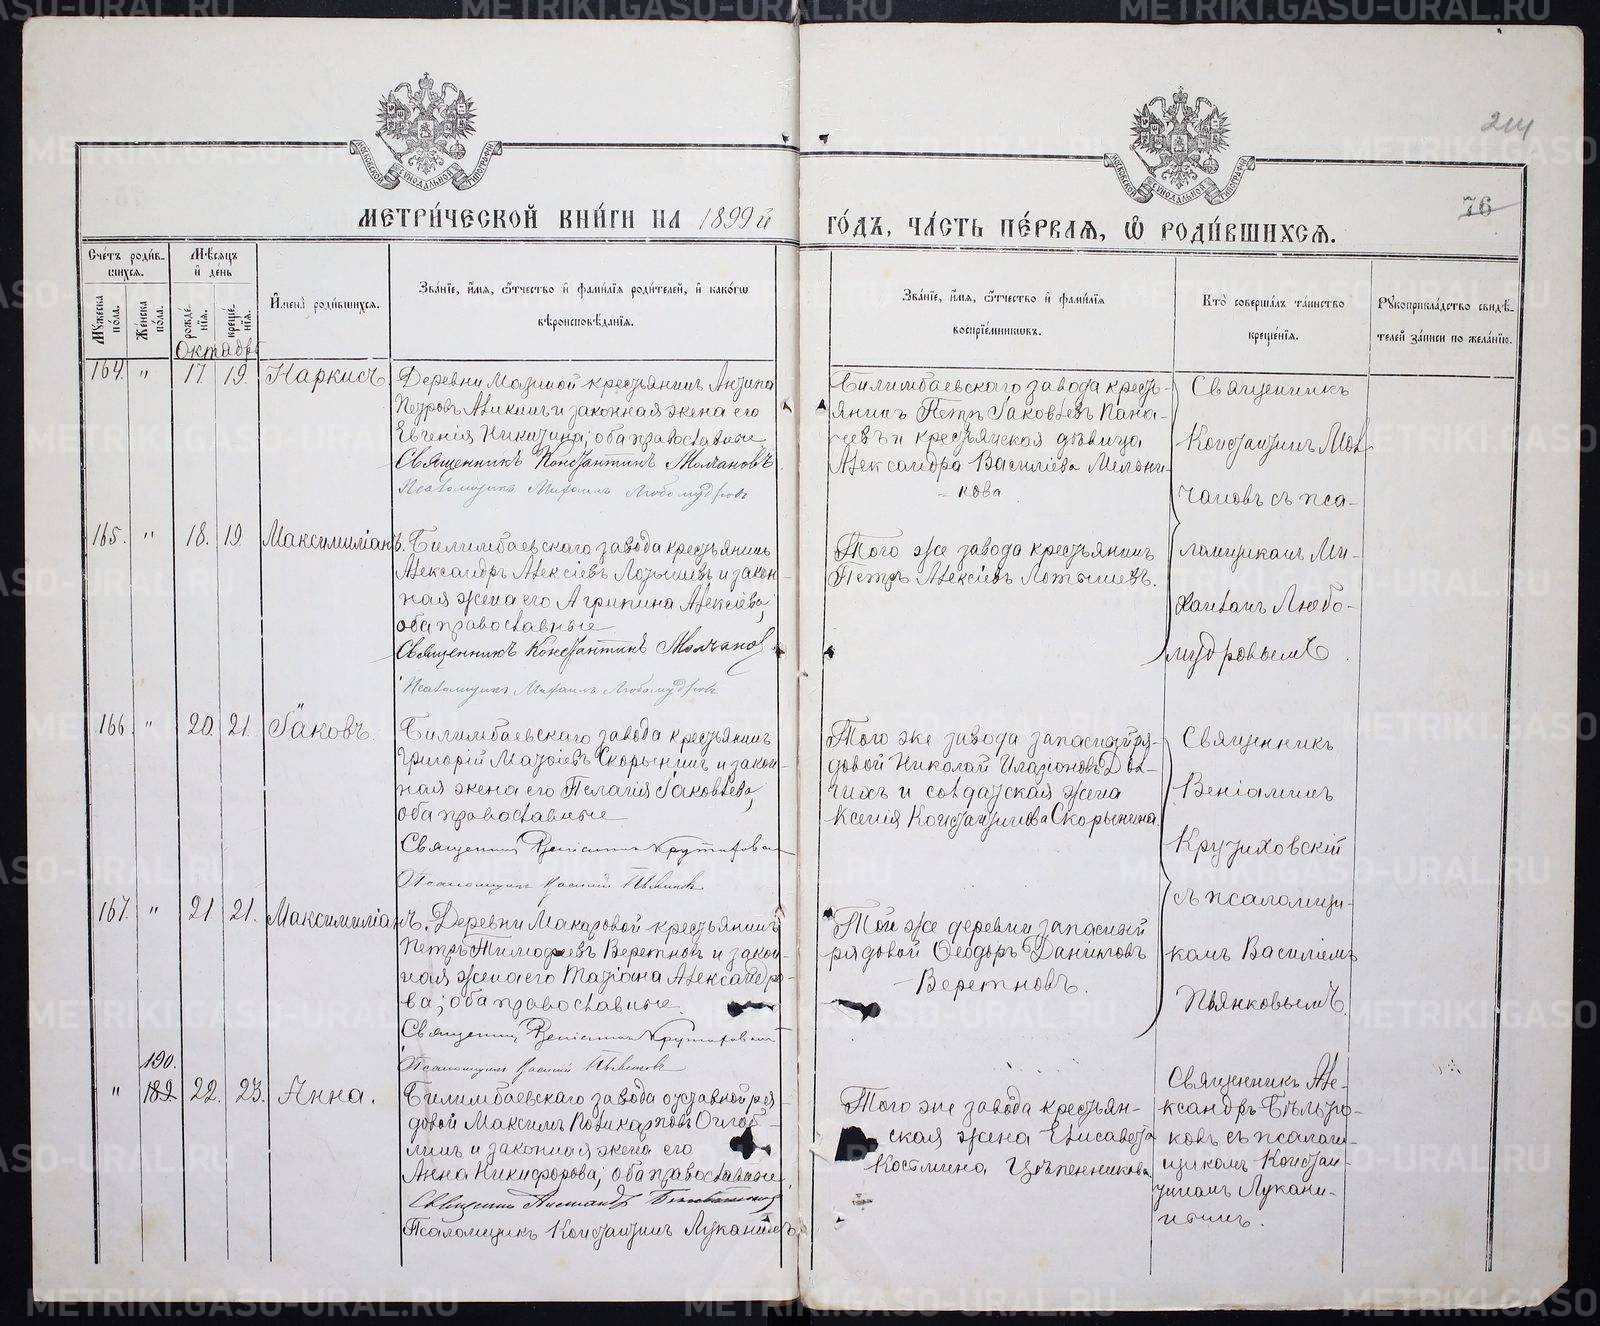 214
76
МЕТРИ́ЧЕСКОЙ КНИ́ГИ НА 1899й
ГО́ДЪ, ЧА́СТЬ ПЕ́РВАЯ, Ѡ РОДИ́ВШИХСЯ.
Сче́тъ роди́в-
шихся.
Му́жеска по́ла.
Же́нска по́ла.
Мѣ́сяцъ
и де́нь
рожде́-
нїя.
креще́-
нїя.
И҆мена̀ роди́вшихся.
Зва́нїе, и҆́мя, ѻ҆́тчество и҆ фами́лїя роди́телей, и҆ како́гѡ
вѣроисповѣ́данїя.
Зва́нїе, и҆́мя, ѻ҆́тчество и҆ фами́лїя
воспрїе́мникѡвъ.
Кто̀ соверша́лъ та́инство
креще́нїя.
Рꙋкоприкла́дство свидѣ́-
телей за́писи по жела́нїю.
Октябрь
164. " 17. 19. Наркисъ.
Деревни Мазиной крестьянинъ Антипа
Петровъ Аликинъ и законная жена его
Евгенія Никитина; оба православные
Священникъ Константинъ Молчановъ.
Псаломщикъ Михаилъ Любомудровъ
Билимбаевскаго завода кресть-
янинъ Петръ Іаковлевъ Пана-
чевъ и крестьянская дѣвица
Александра Василіева Мельни-
кова
Священникъ
Константинъ Мол-
чановъ съ пса-
ломщикомъ Ми-
хаиломъ Любо-
мудровымъ.
165. " 18. 19 Максимиліанъ.
Билимбаевскаго завода крестьянинъ
Александръ Алексіевъ Лотышевъ и закон-
ная жена его Агрипина Алексіева,
оба православные
Священникъ Константинъ Молчановъ
Псаломщикъ Михаилъ Любомудровъ
Того же завода крестьянинъ
Петръ Алексіевъ Лотышевъ.
166 " 20. 21. Іаковъ.
Билимбаевскаго завода крестьянинъ
Григорій Матѳіевъ Скорынинъ и закон-
ная жена его Пелагія Іаковлева,
оба православные
Священникъ Веніаминъ Крутиховскій
Псаломщикъ Василій Пьянковъ
Того же завода запасный ря-
довой Николай Иларіоновъ Дол-
гихъ и солдатская жена
Ксенія Константинова Скорынина.
Священникъ
Веніаминъ
Крутиховскій
съ псаломщи-
комъ Василіемъ
Пьянковымъ.
167. " 21. 21. Максимиліанъ.
Деревни Макаровой крестьянинъ
Петръ Тимофеевъ Веретновъ и закон-
ная жена его Татіана Александро-
ва; оба православные.
Священникъ Веніаминъ Крутиховскій
Псаломщикъ Василій Пьянковъ
Той же деревни запасный
рядовой Ѳеодоръ Даниловъ
Веретновъ.
190.
" 189. 22. 23. Анна.
Билимбаевскаго завода отставной ря-
довой Максимъ Поликарповъ Оглоб-
линъ и законная жена его
Анна Никифорова; оба православные.
Псаломщикъ Константинъ Луканинъ
Того же завода крестьян-
ская жена Елисавета
Костина Цѣпенникова
Священникъ Але-
ксандръ Бѣльтю-
ковъ съ псалом-
щикомъ Констан-
тиномъ Лукани-
нымъ.